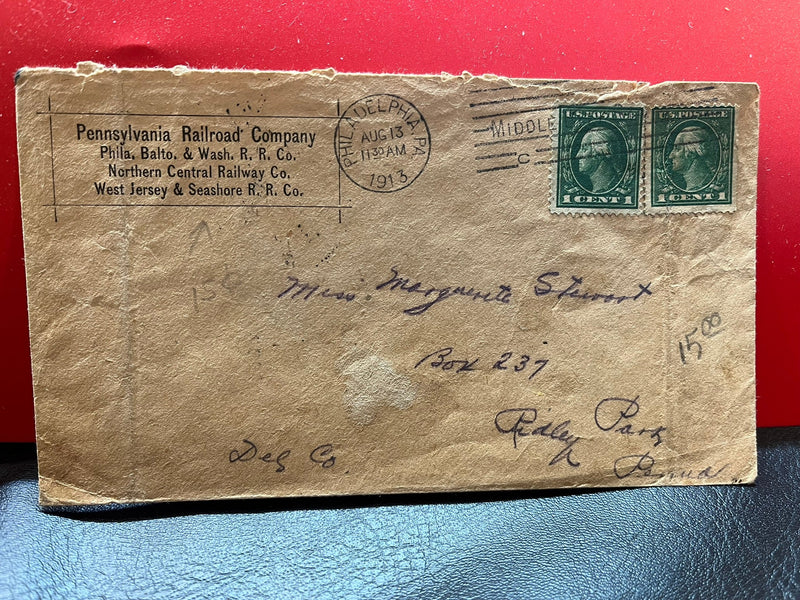 Pennsylvania Railroad Company
Phila. Balto. & Wash. R. R. Co.
Northern Central Railway Co.
West Jersey & Seashore R. R. Co.
PHILADELPHIA, PA.
AUG 13
11 30 AM
1913
MIDDLE
C
U.S. POSTAGE
1 CENT 1
U.S. POSTAGE
1 CENT 1
Miss. Marguerite Stewart
Box 237
Ridley Park
Penna
Del Co.
15 00